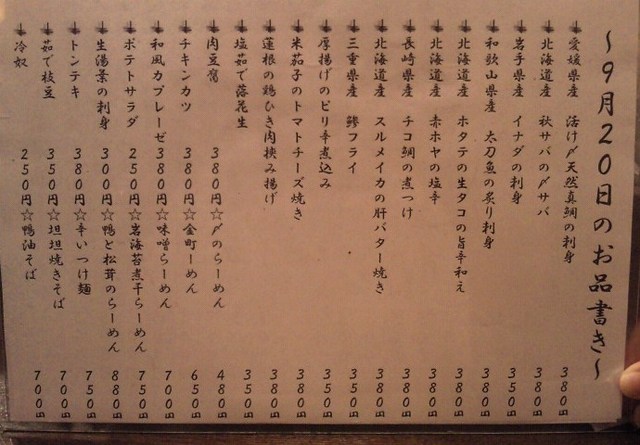 ～9月20日のお品書き～
愛媛県産 活け〆天然真鯛の刺身 380
北海道産 秋サバの〆サバ 380
岩手県産 イナダの刺身 350
和歌山県産 太刀魚の炙り刺身 380
北海道産 ホタテの生タコの旨辛和え 380
北海道産 赤ホヤの塩辛 350
長崎県産 チコ鯛の煮つけ 380
北海道産 スルメイカの肝バター焼き 380
三重県産 鯵フライ 350
厚揚げのピリ辛煮込み 350
米茄子のトマトチーズ焼き 380
蓮根の鶏ひき肉挟み揚げ 380
塩茹で落花生 350
肉豆腐 380円☆〆のらーめん 480
チキンカツ 380円☆金町らーめん 650
和風カプレーゼ 380円☆味噌らーめん 700円
ポテトサラダ 250円☆岩海苔煮干らーめん 750円
生湯葉の刺身 300円☆鴨と松茸のらーめん 880円
トンテキ 380円☆辛いつけ麺 750円
茹で枝豆 350円☆坦坦焼きそば 700円
冷奴 250円☆鴨油そば 700円